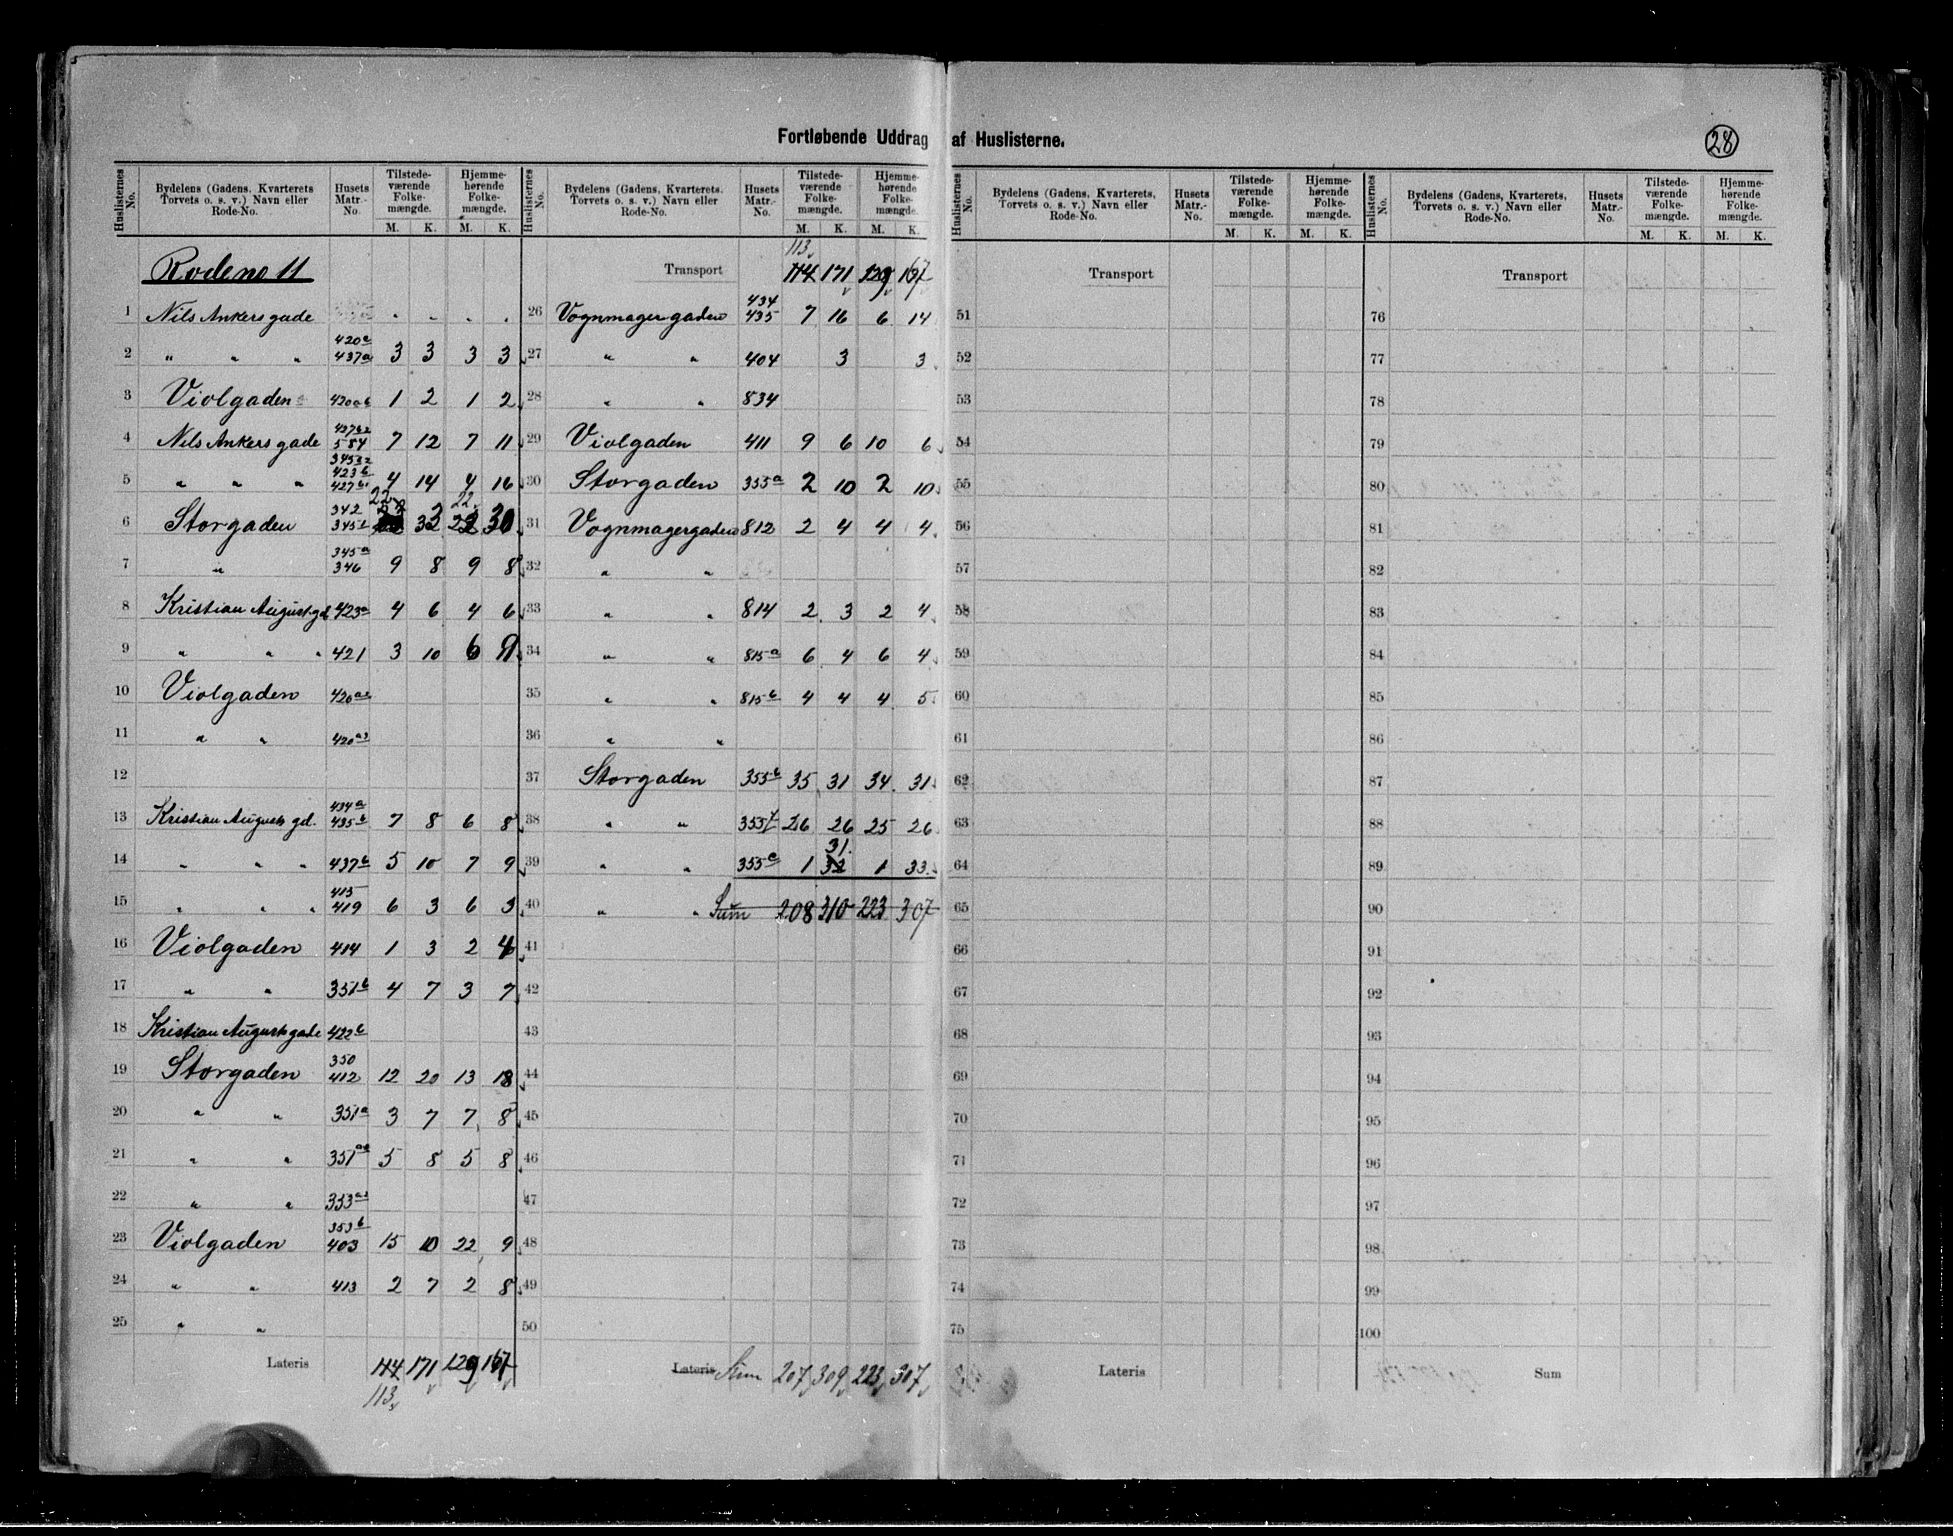 Fortløbende Uddrag af Huslisterne.
28
Huslisternes No. | Bydelens (Gadens, Kvarterets Torvets o. s. v.) Navn eller Rode-No. | Husets Matr.-No. | Tilstede-værende Folke-mængde. M. K. | Hjemme-hørende Folke-mængde. M. K.
Rodeno 11
1 Nils Ankers gade . . . .
2 " " " 420a 437a 3 3 3 3
3 Violgaden 420a6 1 2 1 2
4 Nils Ankers gade 584 7 12 7 11
5 " " " 423b 427b 4 14 4 16
6 Storgaden 342 345 22 32 22 30
7 " 345a 346 9 8 9 8
8 Kristian August gd 423a 4 6 4 6
9 " " " 421 3 10 6 9
10 Violgaden 420a2
11 " " 420a3
12
13 Kristian Augusts gd. 434a 435b 7 8 6 8
14 " " " 437b 5 10 7 9
15 " " " 415 419 6 3 6 3
16 Violgaden 414 1 3 2 4
17 " " 351b 4 7 3 7
18 Kristian Augusts gade 422b
19 Storgaden 350 412 12 20 13 18
20 " " 351a 3 7 7 8
21 " " 351a2 5 8 5 8
22 " " 353a2
23 Violgaden 353b 403 15 10 22 9
24 " " 413 2 7 2 8
25 " "
Lateris 114 171 129 167
113
Huslisternes No. | Bydelens (Gadens, Kvarterets. Torvets o. s. v.) Navn eller Rode-No. | Husets Matr.-No. | Tilstede-værende Folke-mængde. M. K. | Hjemme-hørende Folke-mængde. M. K.
113
Transport 114 171 129 167
26 Vognmagergaden 434 435 7 16 6 14
27 " " 404 3 3
28 " " 834
29 Violgaden 411 9 6 10 6
30 Storgaden 355a 2 10 2 10
31 Vognmagergaden 812 2 4 4 4
32 " "
33 " " 814 2 3 2 4
34 " " 815a 6 4 6 4
35 " " 815b 4 4 4 5
36 " "
37 Storgaden 355b 35 31 34 31
38 " " 355 26 26 25 26
31.
39 " " 355c 1 32 1 33
40 " " Sum 208 310 223 307
41
42
43
44
45
46
47
48
49
50
Lateris Sum 207 309 223 307
Huslisternes No. | Bydelens (Gadens, Kvarterets, Torvets o. s. v.) Navn eller Rode-No. | Husets Matr.-No. | Tilstede-værende Folke-mængde. M. K. | Hjemme-hørende Folke-mængde. M. K.
Transport
51
52
53
54
55
56
57
58
59
60
61
62
63
64
65
66
67
68
69
70
71
72
73
74
75
Lateris
Huslisternes No. | Bydelens (Gadens, Kvarterets, Torvets o. s. v.) Navn eller Rode-No. | Husets Matr.-No. | Tilstede-værende Folke-mængde. M. K. | Hjemme-hørende Folke-mængde. M. K.
Transport
76
77
78
79
80
81
82
83
84
85
86
87
88
89
90
91
92
93
94
95
96
97
98
99
100
Sum